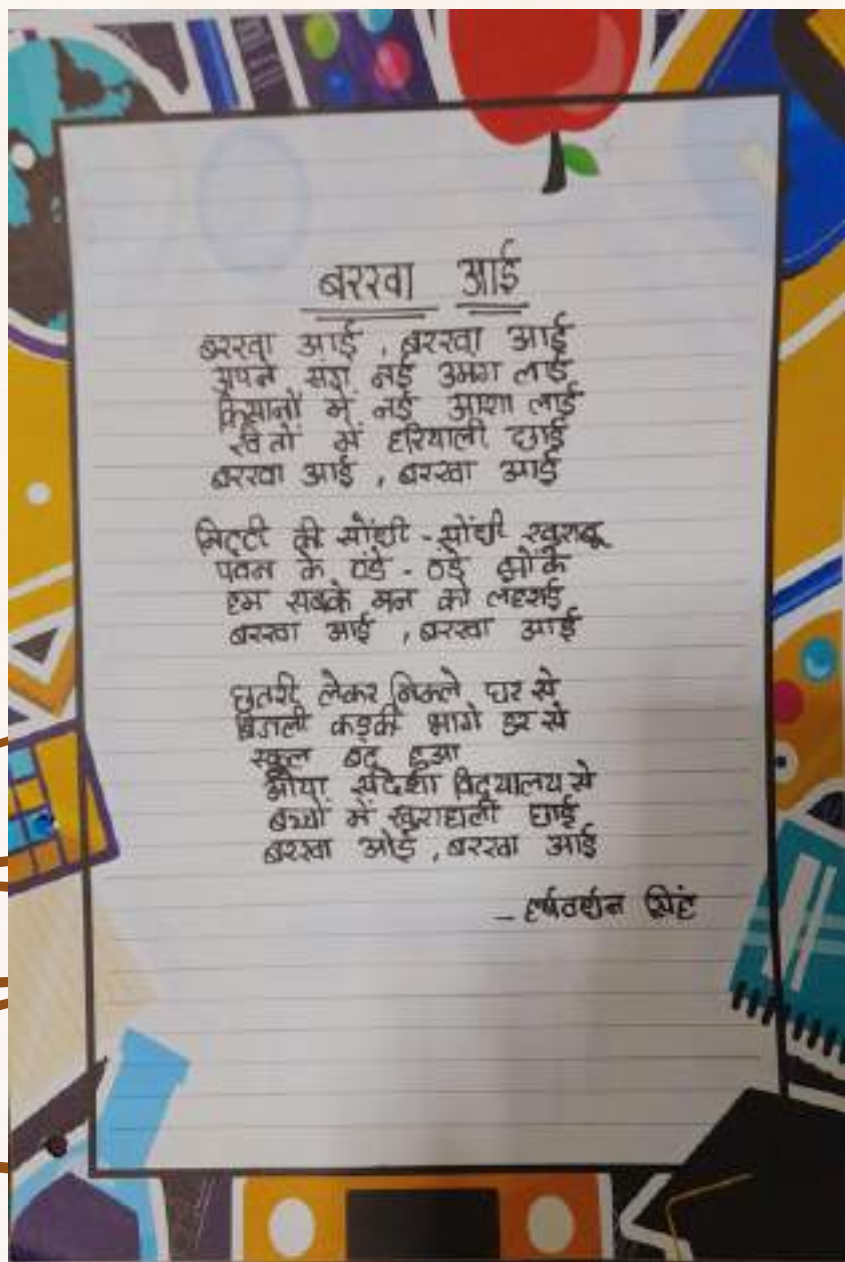 बरखा आई
बरखा आई , बरखा आई
अपने संग नई उमंग लाई
किसानों में नई आशा लाई
खेतों में हरियाली छाई
बरखा आई , बरखा आई
मिट्टी की सोंधी - सोंधी खुशबू
पवन के ठंडे - ठंडे झोंके
हम सबके मन को लहराई
बरखा आई , बरखा आई
छतरी लेकर निकले घर से
बिजली कड़की भागे डर से
स्कूल बंद हुआ
आया संदेशा विद्यालय से
बच्चों में खुशहाली छाई
बरखा आई , बरखा आई
- हर्षवर्धन सिंह